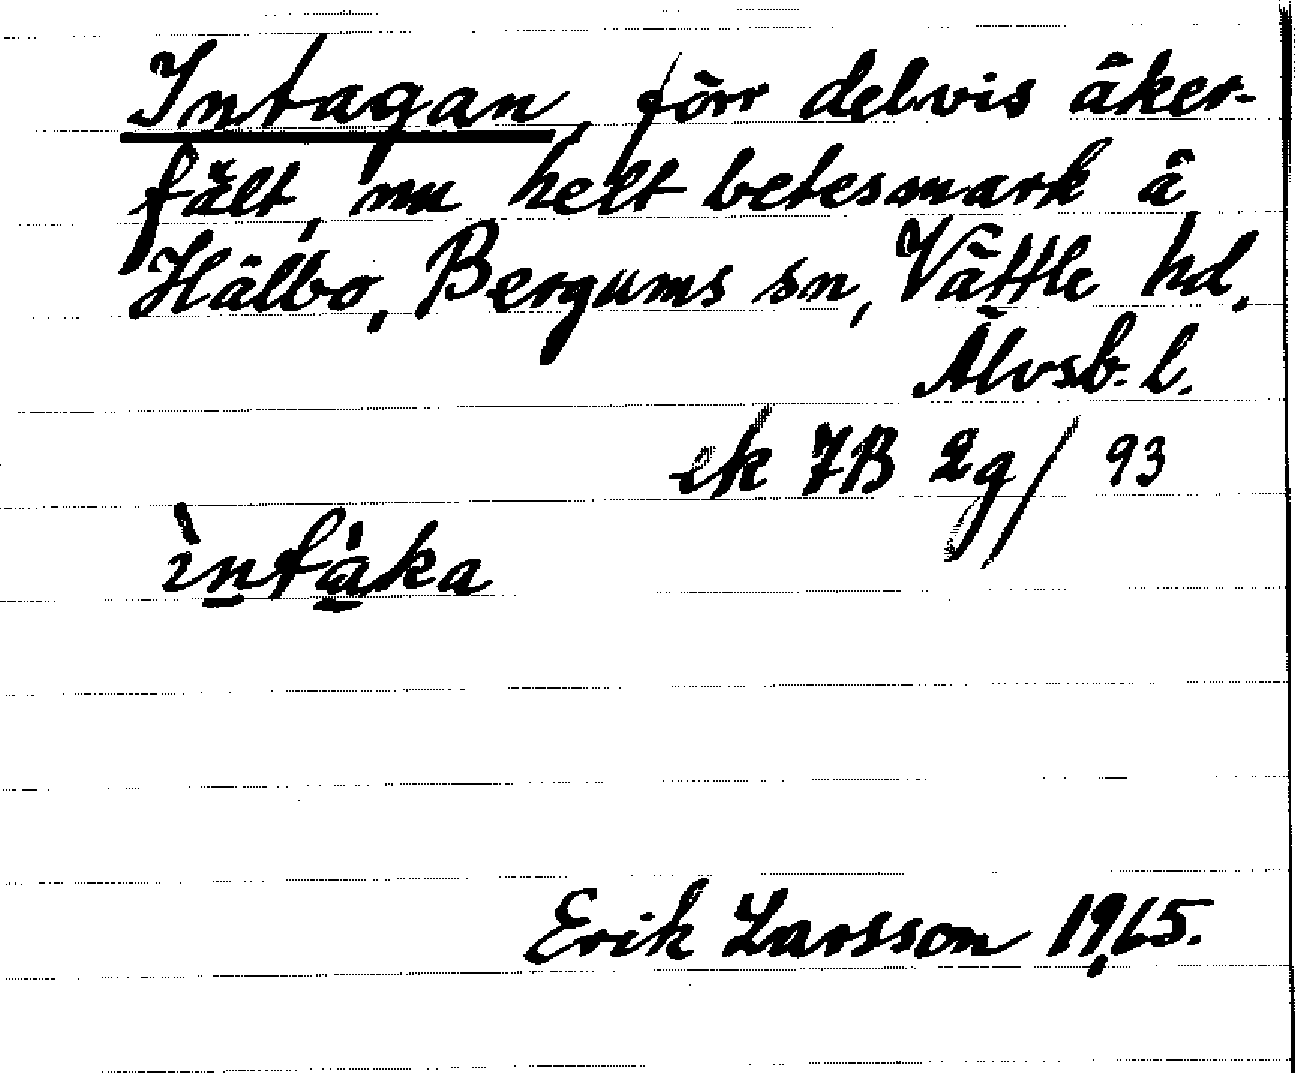 Intagan, förr delvis åker-
fält, nu helt betesmark å
Hålbo, Bergums sn, Vättle hd.
Älvsb. l.
ek 7B 2g/93
ìntàka
Erik Larsson 1965.